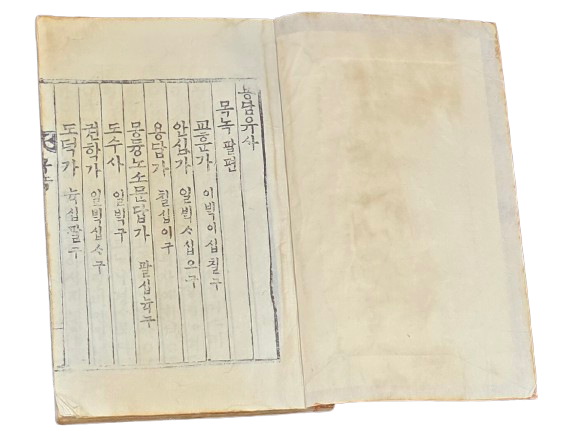 용담유사
목녹 팔편
교훈가 이빅이십칠구
안심가 일빅사십오구
용담가 칠십이구
몽듕노소문답가 팔십뉵구
도수사 일빅구
권학가 일빅십사구
도덕가 뉵십팔구
목녹